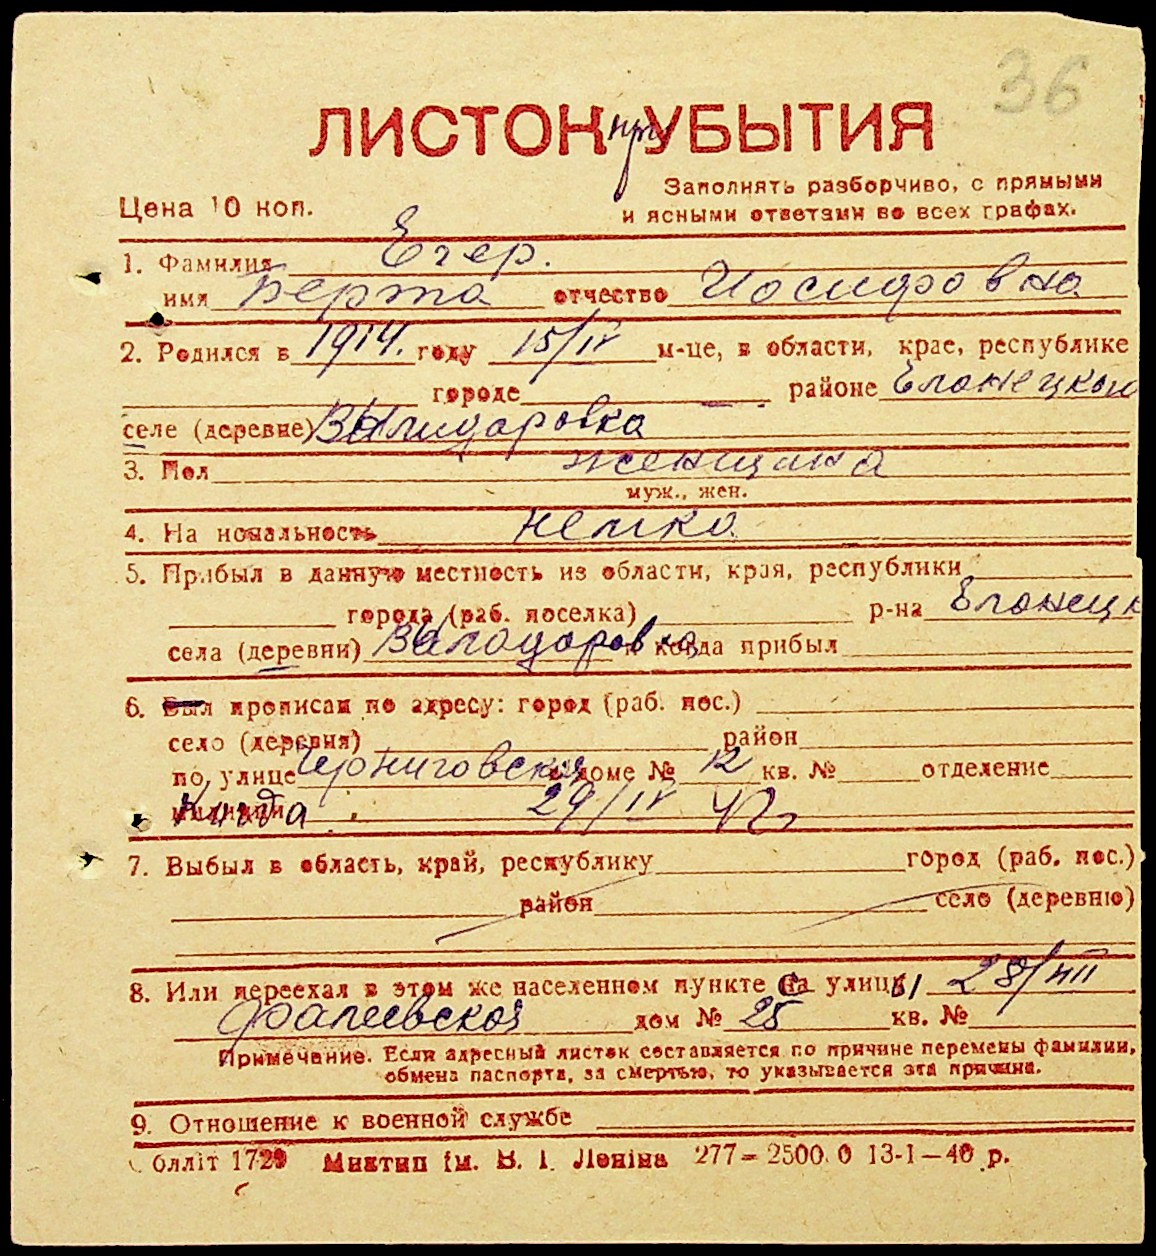 36
ЛИСТОК при УБЫТИЯ
Заполнять разборчиво, с прямыми
Цена 10 коп.
и ясными ответами во всех графах.
1. Фамилия Егер.
имя Берта отчество Иосифовна
2. Родился в 1914. году 15/IV м-це, в области, крае, республике
городе районе Еланецкого
селе (деревне) Вылидаровка
3. Пол женщина
муж., жен.
4. Национальность немка
5. Прибыл в данную местность из области, края, республики
города (раб. поселка) р-на Еланецк
села (деревни) Валодаровка и когда прибыл
6. Был прописан по адресу: город (раб. пос.)
село (деревня) район
по улице Черниговская в доме № 12 кв. № отделение
милиции Когда 29/IV 42 г
7. Выбыл в область, край, республику город (раб. пос.)
район село (деревню)
8. Или переехал в этом же населенном пункте с улицы 28/VIII
Фалеевской дом № 25 кв. №
Примечание. Если адресный листок составляется по причине перемены фамилии,
обмена паспорта, за смертью, то указывается эта причина.
9. Отношение к военной службе
блліт 1729 Миктип ім. В. І. Леніна 277—2500.0 13-I—40 р.